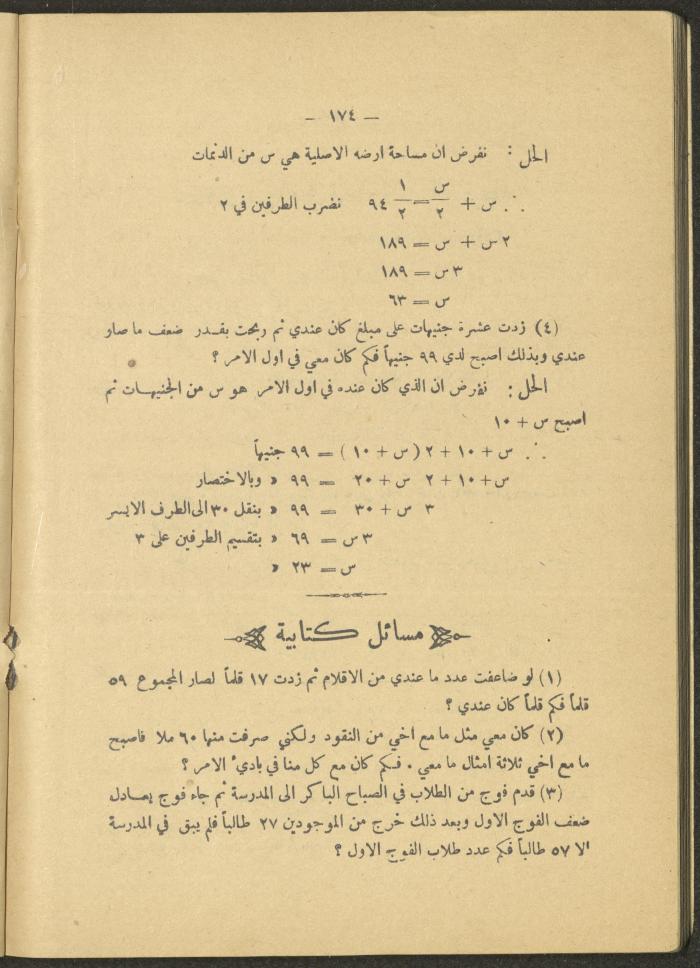 — ١٧٤ —
الحل : نفرض ان مساحة ارضه الاصلية هي س من الدنمات
∴ س + س/٢ = ١/٢ ٩٤ نضرب الطرفين في ٢
٢ س + س = ١٨٩
٣ س = ١٨٩
س = ٦٣
(٤) زدت عشرة جنيهات على مبلغ كان عندي ثم ربحت بقدر ضعف ما صار
عندي وبذلك اصبح لدي ٩٩ جنيهاً فكم كان معي في اول الامر ؟
الحل : نفرض ان الذي كان عنده في اول الامر هو س من الجنيهات ثم
اصبح س + ١٠
∴ س + ١٠ + ٢ ( س + ١٠ ) = ٩٩ جنيهاً
س + ١٠ + ٢ س + ٢٠ = ٩٩ « وبالاختصار
٣ س + ٣٠ = ٩٩ « بنقل ٣٠ الى الطرف الايسر
٣ س = ٦٩ « بتقسيم الطرفين على ٣
س = ٢٣ «
مسائل كتابية
(١) لو ضاعفت عدد ما عندي من الاقلام ثم زدت ١٧ قلماً لصار المجموع ٥٩
قلماً فكم قلماً كان عندي ؟
(٢) كان معي مثل ما مع اخي من النقود ولكني صرفت منها ٦٠ ملا فاصبح
ما مع اخي ثلاثة امثال ما معي . فكم كان مع كل منا في بادئ الامر ؟
(٣) قدم فوج من الطلاب في الصباح الباكر الى المدرسة ثم جاء فوج يعادل
ضعف الفوج الاول وبعد ذلك خرج من الموجودين ٢٧ طالباً فلم يبق في المدرسة
الا ٥٧ طالباً فكم عدد طلاب الفوج الاول ؟